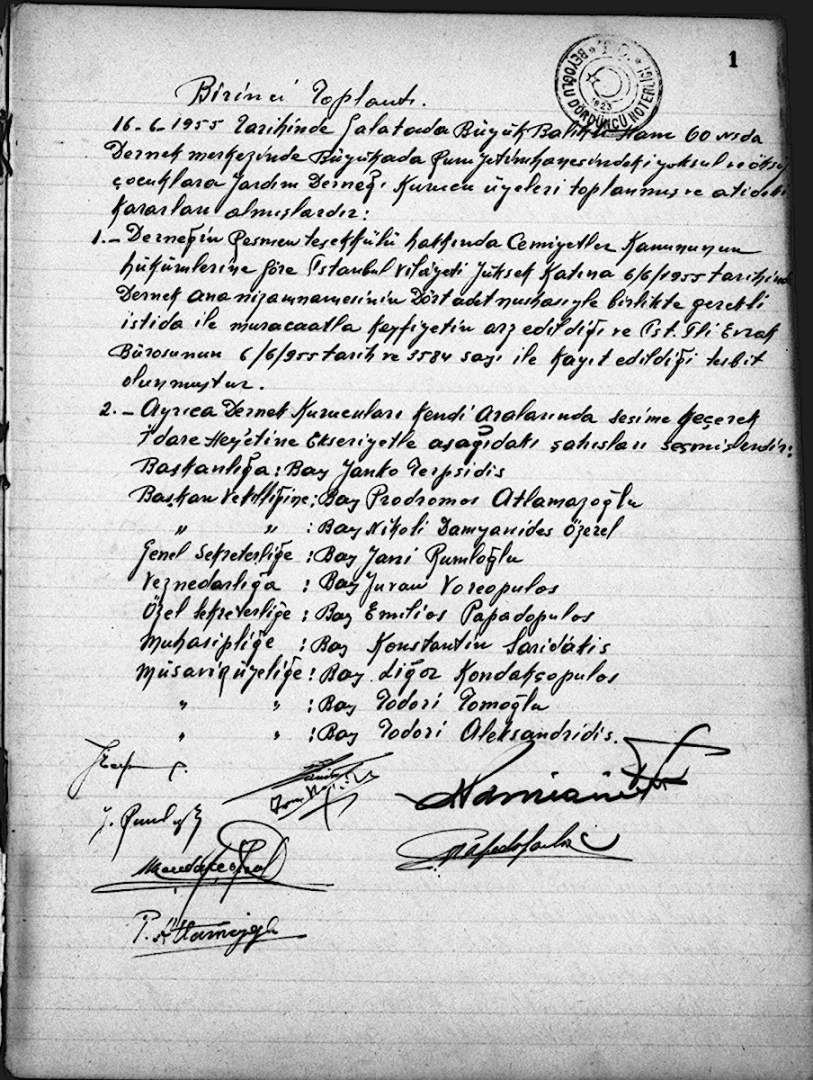 1
T.C. BEYOĞLU DÖRDÜNCÜ NOTERLİĞİ
1923
Birinci Toplantı.
16-6-1955 Tarihinde Galatada Büyük Balıklı Han 60 No da
Dernek merkezinde Büyükada Rum Yetimhanesindeki yoksul ve öksüz
çocuklara Yardım Derneği Kurucu üyeleri toplanmış ve atideki
Kararları almışlardır:
1.- Derneğin Resmen teşekkülü hakkında Cemiyetler Kanununun
hükümlerine göre İstanbul Vilâyeti Yüksek Katına 6/6/1955 tarihinde
Dernek ana nizamnamesinin Dört adet nushasıyle birlikte gerekli
istida ile muracaatla Keyfiyetin arz edildiği ve İst. İli Evrak
Bürosunun 6/6/955 tarih ve 3584 sayı ile Kayıt edildiği tesbit
olunmuştur.
2.- Ayrıca Dernek Kurucuları Kendi Aralarında seçime geçerek
İdare Hey'etine Ekseriyetle aşağıdaki şahısları seçmişlerdir:
Başkanlığa : Bay Yanko Terpsidis
Başkan Vekilliğine : Bay Prodromos Atlamazoğlu
" " : Bay Nikoli Damyanides Özerel
Genel Sekreterliğe : Bay Yani Rumloğlu
Veznedarlığa : Bay Yuvan Voreopulos
Özel Sekreterliğe : Bay Emilios Papadopulos
Muhasipliğe : Bay Konstantin Saridakis
Müşavir üyeliğe : Bay Ligor Kondakçopulos
" " : Bay Todori Tomoğlu
" " : Bay Todori Aleksandridis.
P. Atlamazoglu